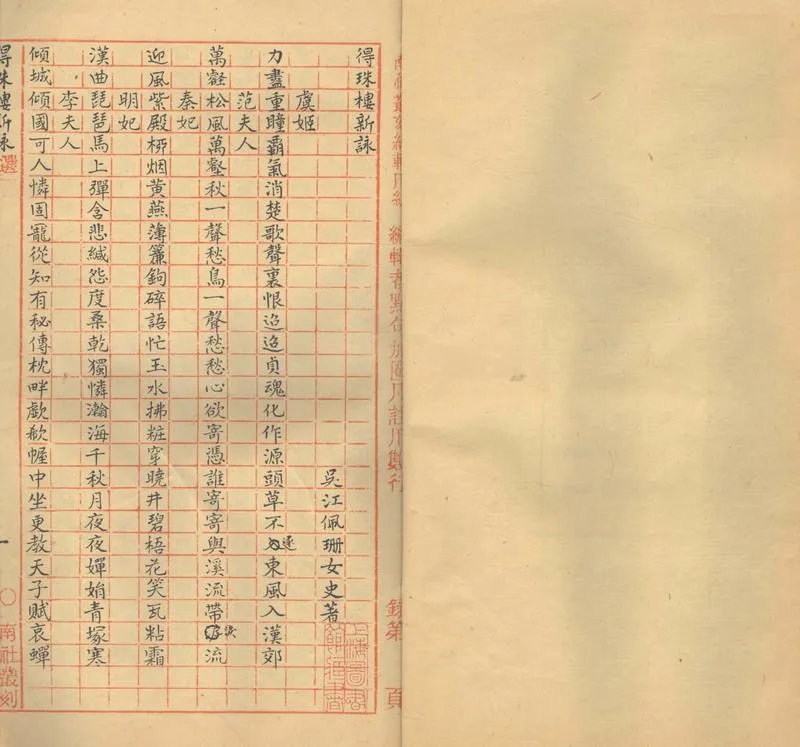 得珠樓新詠
吳江佩珊女史著
虞姬
力盡重瞳霸氣消楚歌聲裏恨迢迢貞魂化作源頭草不逐東風入漢郊
范夫人
萬壑松風萬壑秋一聲愁鳥一聲愁愁心欲寄憑誰寄寄與溪流帶淚流
秦妃
迎風紫殿栁烟黃燕薄簾鉤碎語忙玉水拂粧穿曉井碧梧花笑瓦粘霜
明妃
漢曲琵琶馬上彈含悲緘怨度桑乾獨憐瀚海千秋月夜夜嬋娟青塚寒
李夫人
傾城傾國可人憐固寵從知有秘傳枕畔歔欷幄中坐更教天子賦哀蟬
得珠樓新詠
選
一
南社叢刻
頁